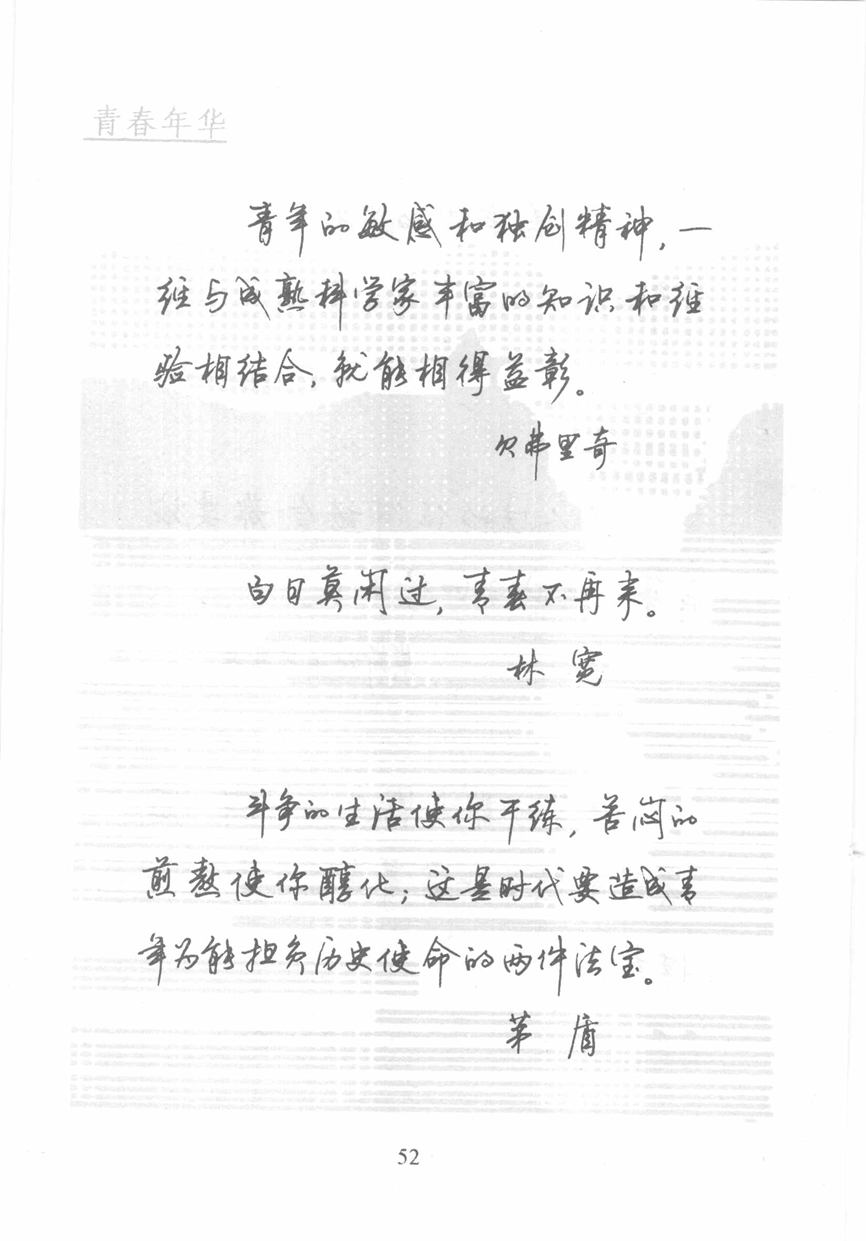 青春年华
青年的敏感和独创精神，一
经与成熟科学家丰富的知识和经
验相结合，就能相得益彰。
欠弗里奇
白日莫闲过，青春不再来。
林宽
斗争的生活使你干练，苦闷的
煎熬使你醇化；这是时代要造成青
年为能担负历史使命的两件法宝。
茅盾
52